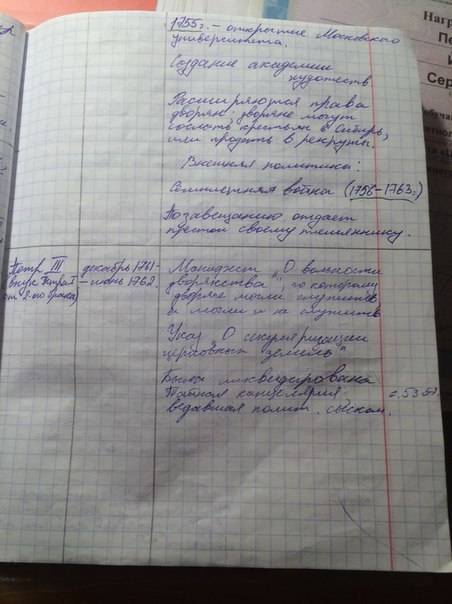 1755г. – открытие Московского
университета.
Создание академии
художеств
Расширяются права
дворян: дворяне могут
сослать крестьян в Сибирь,
или продать в рекруты.
Внешняя политика:
Семилетняя война (1756–1763г.)
По завещанию отдает
престол своему племяннику.
Петр III
внук Петра I
от 2-ого брака)
декабрь 1761–
– июнь 1762.
Манифест „О вольности
дворянства", по которому
дворяне могли служить
и могли и не служить
Указ „О секуляризации
церковных земель"
Была ликвидирована
Тайная канцелярия,
ведавшая полит. сыском.
с. 53
Нагр
Пе
И
Сер